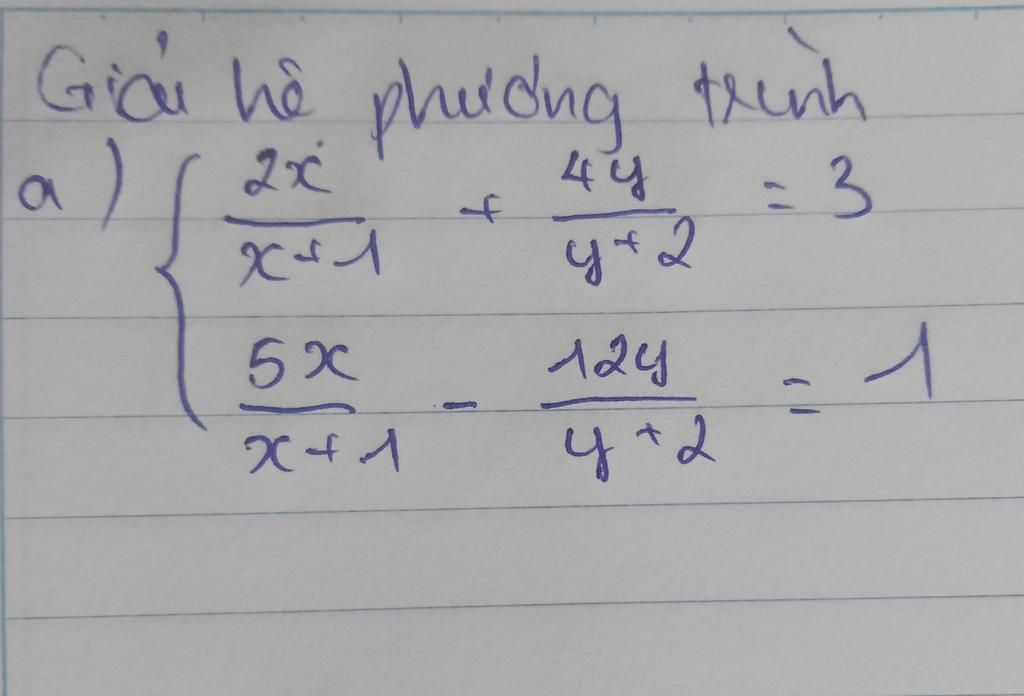 Giải hệ phương trình
a) { 2x/(x+1) + 4y/(y+2) = 3
5x/(x+1) - 12y/(y+2) = 1